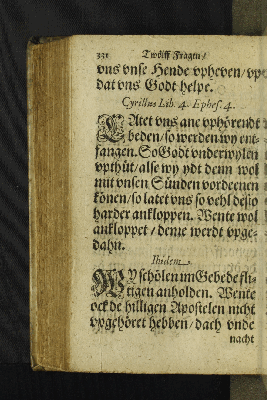 331 Twölff Fragen/
vns vnse Hende vpheven/ vp
dat vns Godt helpe.
Cyrillus Lib. 4. Ephes. 4.
LAtet vns ane vphörendt
beden/ so werden wy ent-
fangen. So Godt vnderwylen
vpthüt/ alse wy ydt denn wol
mit vnsen Sünden vordeenen
können/ so latet vns so vehl desto
harder ankloppen. Wente wol
ankloppet/ deme werdt vpge-
dahn.
Ibidem.
WY schölen im Gebede fli-
tigen anholden. Wente
ock de hilligen Apostelen nicht
vpgehöret hebben/ dach vnde
nacht